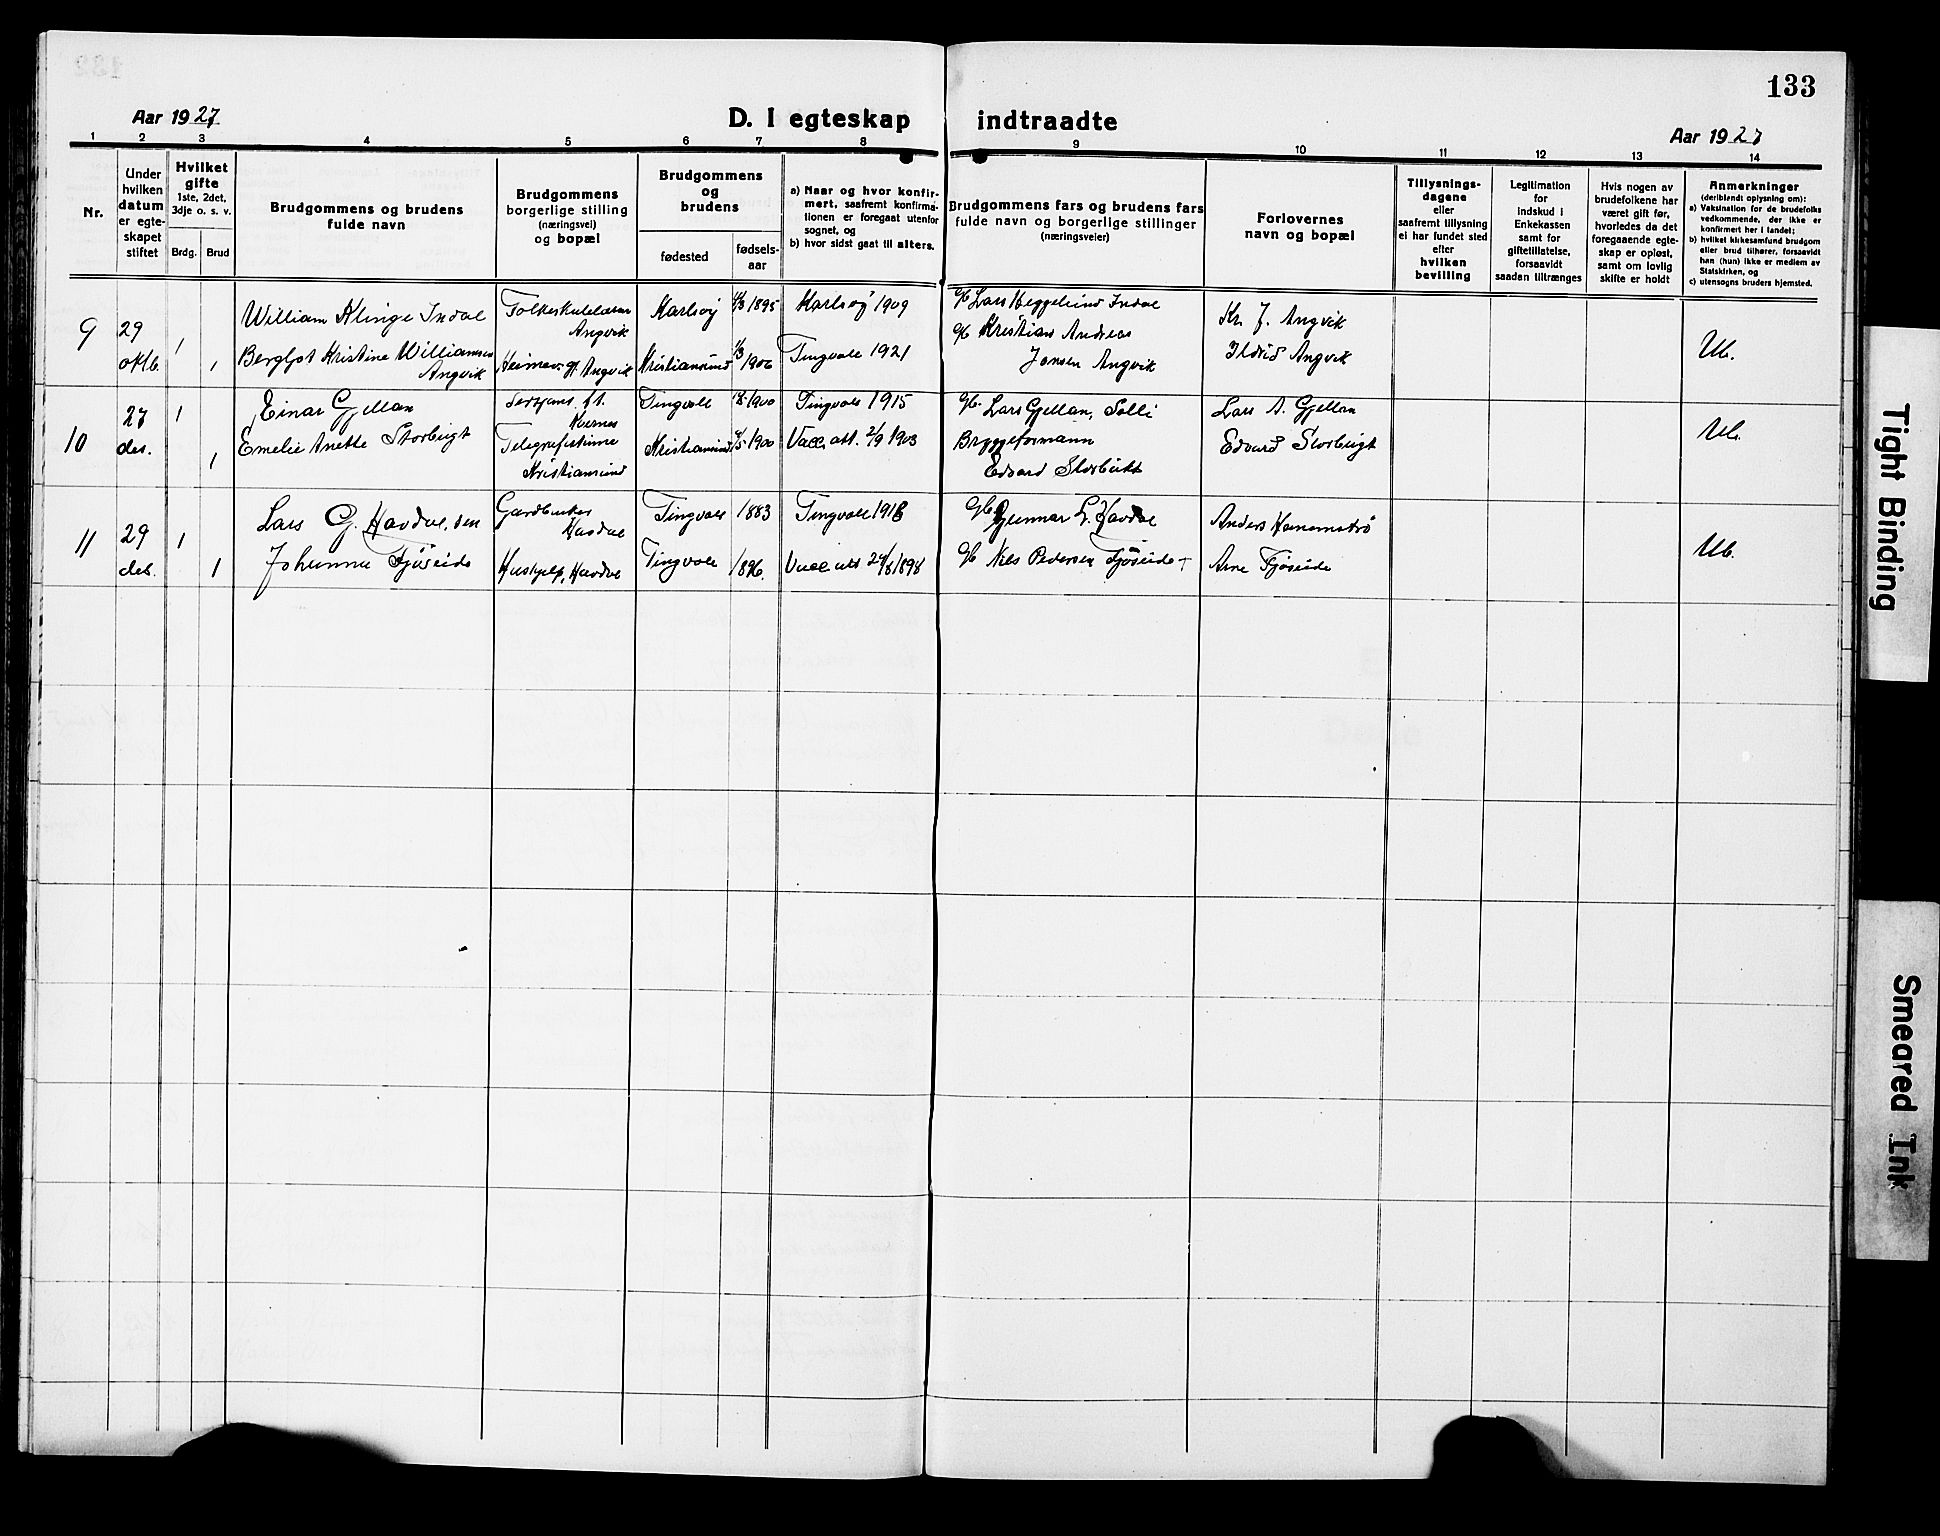 133
Aar 1927
D. I egteskap indtraadte
Aar 1927
1 2 3 4 5 6 7 8 9 10 11 12 13 14
Nr.
Under
hvilken
datum
er egte-
skapet
stiftet
Hvilket
gifte
1ste, 2det,
3dje o. s. v.
Brdg. Brud
Brudgommens og brudens
fulde navn
Brudgommens
borgerlige stilling
(næringsvei)
og bopæl
Brudgommens
og
brudens
fødested
fødsels-
aar
a) Naar og hvor konfir-
mert, saafremt konfirma-
tionen er foregaat utenfor
sognet, og
b) hvor sidst gaat til alters.
Brudgommens fars og brudens fars
fulde navn og borgerlige stillinger
(næringsveier)
Forlovernes
navn og bopæl
Tillysnings-
dagene
eller
saafremt tillysning
ei har fundet sted
efter
hvilken
bevilling
Legitimation
for
Indskud i
Enkekassen
samt for
giftetillatelse,
forsaavidt
saadan tiltrænges
Hvis nogen av
brudefolkene har
været gift før,
hvorledes da det
foregaaende egte-
skap er opløst,
samt om lovlig
skifte er holdt
Anmerkninger
(deriblandt oplysning om):
a) Vaksination for de brudefolks
vedkommende, der ikke er
konfirmert her i landet;
b) hvilket kirkesamfund brudgom
eller brud tilhører, forsaavidt
han (hun) ikke er medlem av
Statskirken, og
c) utensogns bruders hjemsted.
9
29
oktb.
1
1
William Klinge Indal
Bergljot Kristine Williamsen
Angvik
Folkeskolelærer
Angvik
Angvik
Karlsøy 1895
Kristiansund 1/3 1906
Karlsøy 1909
Tingvoll 1921
Lars Heggelund Indal
Kristian Andreas
Jensen Angvik
Kr. J. Angvik
Ildrid Angvik
Ub.
10
27
des.
1
1
Einar Gjellan
Emelie Anette Storbugt
Kvernes
Telegrafistinne
Kristiansund
Tingvoll 1900
Kristiansund 1900
Tingvoll 1915
Vacc. att. 2/9 1903
Lars Gjellan, Solli
Bryggeformann
Edvard Storbukt
Lars A. Gjellan
Edvard Storbugt
Ub.
11
29
des.
1
1
Lars G. Havdal, den
Johanna Fjøseide
Gardbruker
Havdal
Hushjelp, Havdal
Tingvoll 1883
Tingvoll 1896.
Tingvoll 1918
Vacc att 24/8 1898
Gunnar L. Havdal
Nils Pedersen Fjøseide +
Anders Hanemstrø
Arne Fjøseide
Ub.
Tight Binding
Smeared Ink